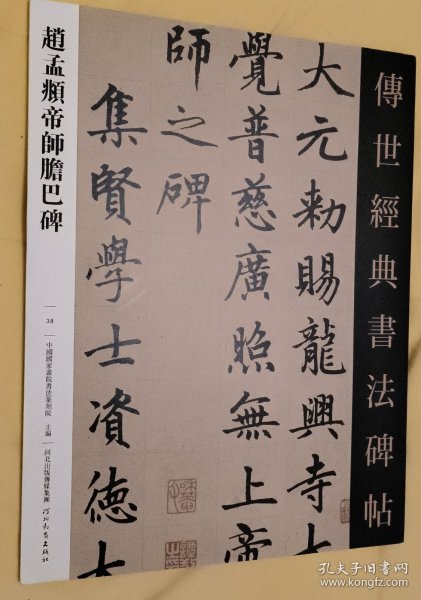 傳世經典書法碑帖
大元勅賜龍興寺大
覺普慈廣照無上帝
師之碑
集賢學士資德大
趙孟頫帝師膽巴碑
38
中國國家畫院書法篆刻院 主編
河北出版傳媒集團
河北教育出版社
孔夫子旧书网
www.kongfz.com